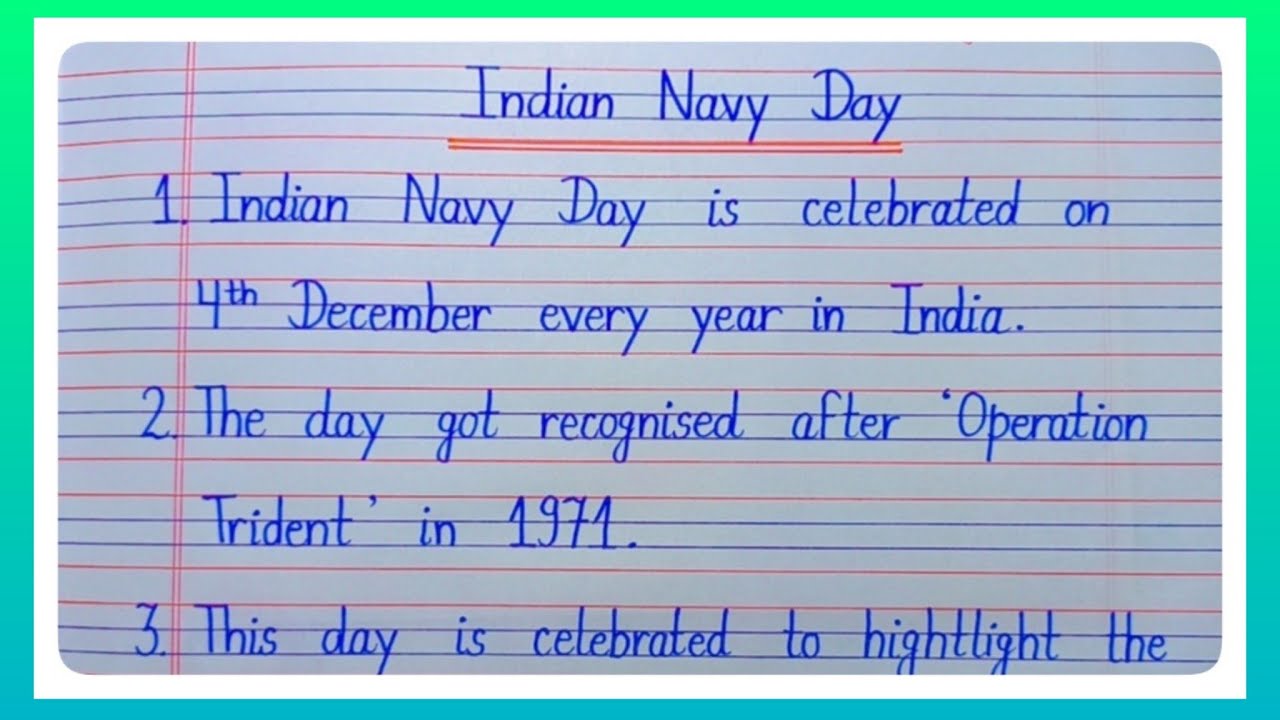 Indian Navy Day
1. Indian Navy Day is celebrated on
4th December every year in India.
2. The day got recognised after 'Operation
Trident' in 1971.
3. This day is celebrated to hightlight the